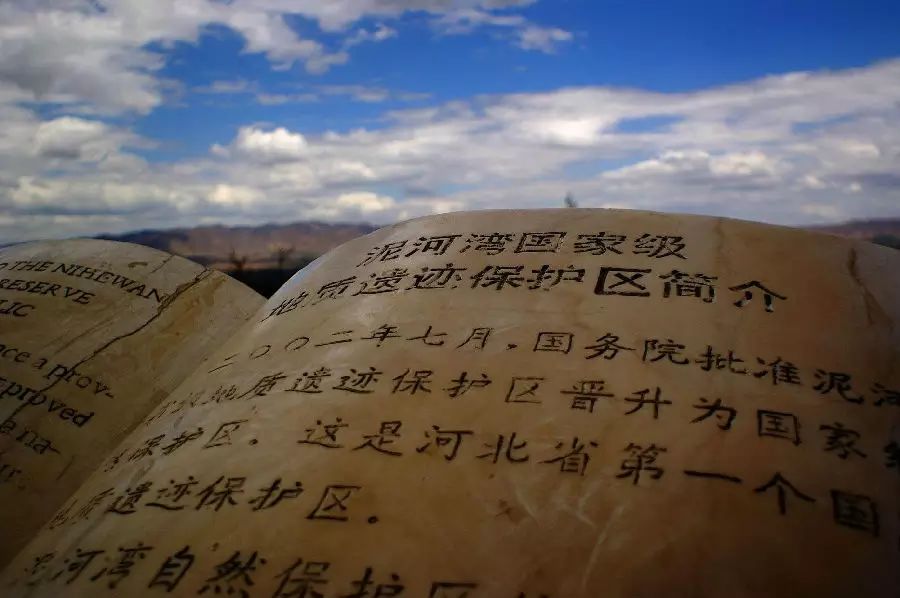 TO THE NIHEWAN
RESERVE
LIC
nce a prov-
approved
a na-
泥河湾国家级
地质遗迹保护区简介
二〇〇二年七月，国务院批准泥河
地质遗迹保护区晋升为国家级
保护区。这是河北省第一个国
地质遗迹保护区。
泥河湾自然保护区